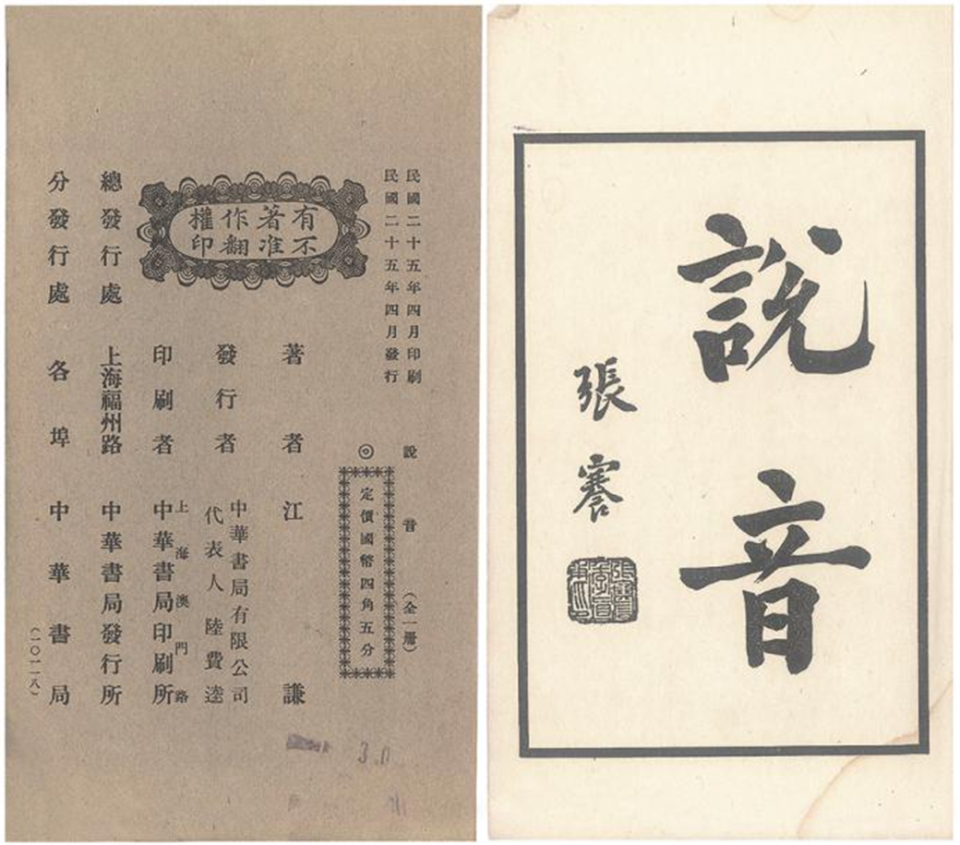 說音
張謇
民國二十五年四月印刷
民國二十五年四月發行
說音（全一冊）
◎定價國幣四角五分
有著作權
不准翻印
著者 江謙
發行者 中華書局有限公司
代表人 陸費逵
印刷者 上海澳門路
中華書局印刷所
總發行處 上海福州路 中華書局發行所
分發行處 各埠 中華書局
（一〇一一八）
3.0